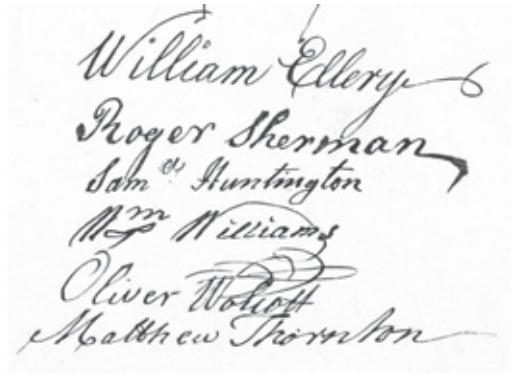 William Ellery
Roger Sherman
Sam el Huntington
Wm Williams
Oliver Wolcott
Matthew Thornton